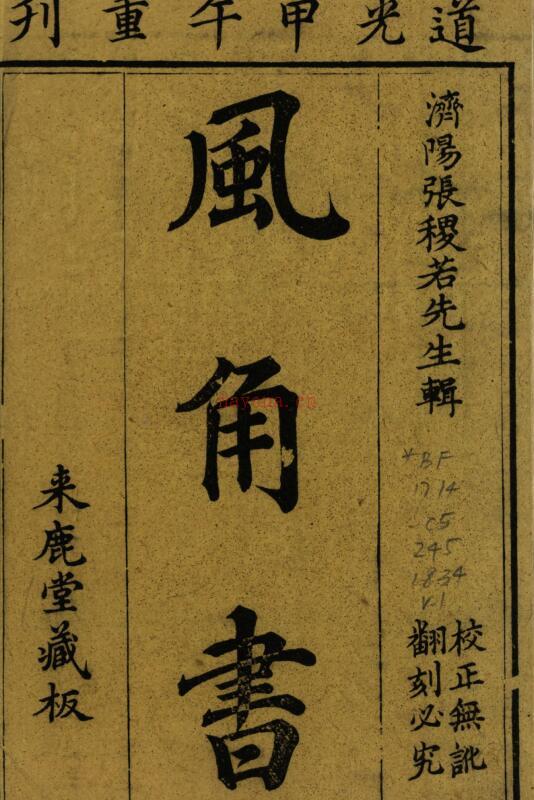 道光甲午重刊
濟陽張稷若先生輯
校正無訛
翻刻必究
風角書
来鹿堂藏板
*BF
1714
-C5
245
1834
V.1